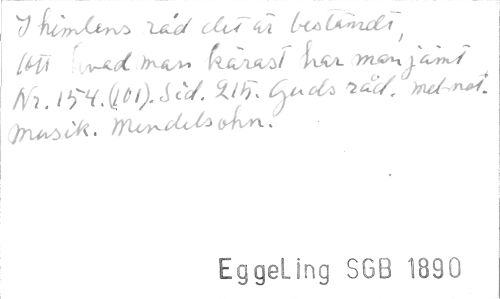 I himlens råd det är bestämdt,
hvad man kärast har man jämt
Nr. 154. (101). Sid. 215. Guds råd. met. not.
musik. Mendelsohn.
EggeLing SGB 1890